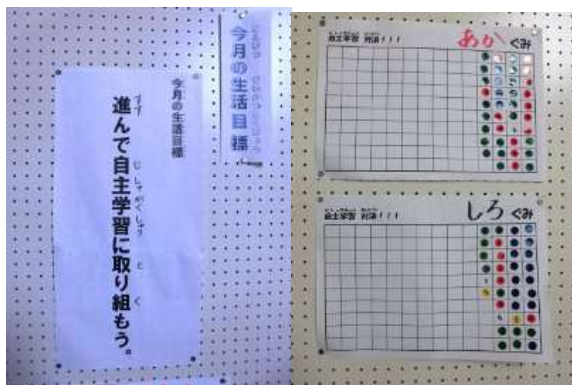 今月の生活目標
今月の生活目標
進んで自主学習に取り組もう。
自主学習 !!!
あか ぐみ
自主学習 !!!
しろ ぐみ